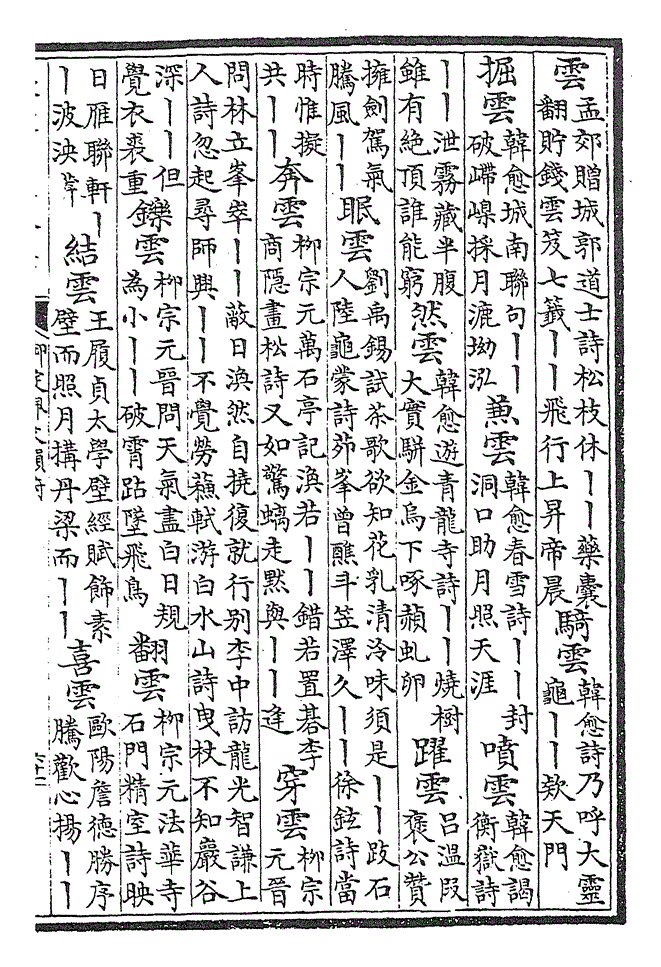 雲
孟郊贈城郭道士詩松枝休丨丨藥囊
翻貯錢雲笈七籤丨丨飛行上昇帝晨
騎雲
韓愈詩乃呼大靈
龜丨丨欵天門
掘雲
韓愈城南聯句丨丨
破嵽嵲採月漉坳泓
兼雲
韓愈春雪詩丨丨封
洞口助月照天涯
噴雲
韓愈謁
衡嶽詩
丨丨泄霧藏半腹
雖有絶頂誰能窮
然雲
韓愈遊青龍寺詩丨丨燒樹
大實駢金烏下啄赬虬卵
躍雲
呂溫叚
褒公贊
擁劍駕氣
騰風丨丨
眠雲
劉禹錫試茶歌欲知花乳清泠味須是丨丨跂石
人陸龜蒙詩茆峯曾醮斗笠澤久丨丨徐鉉詩當
時惟擬
共丨丨
奔雲
柳宗元萬石亭記渙若丨丨錯若置碁李
商隱畫松詩又如驚螭走黙與丨丨逢
穿雲
柳宗
元晉
問林立峯崒丨丨蔽日渙然自撓復就行别李中訪龍光智謙上
人詩忽起尋師興丨丨不覺勞蘓軾游白水山詩曳杖不知巖谷
深丨丨但
覺衣裘重
鑠雲
柳宗元晉問天氣盡白日規
為小丨丨破霄跕墜飛鳥
翻雲
柳宗元法華寺
石門精室詩映
日雁聯軒丨
丨波泱漭
結雲
王履貞太學壁經賦飾素
壁而照月搆丹梁而丨丨
喜雲
歐陽詹德勝序
騰歡心揚丨丨